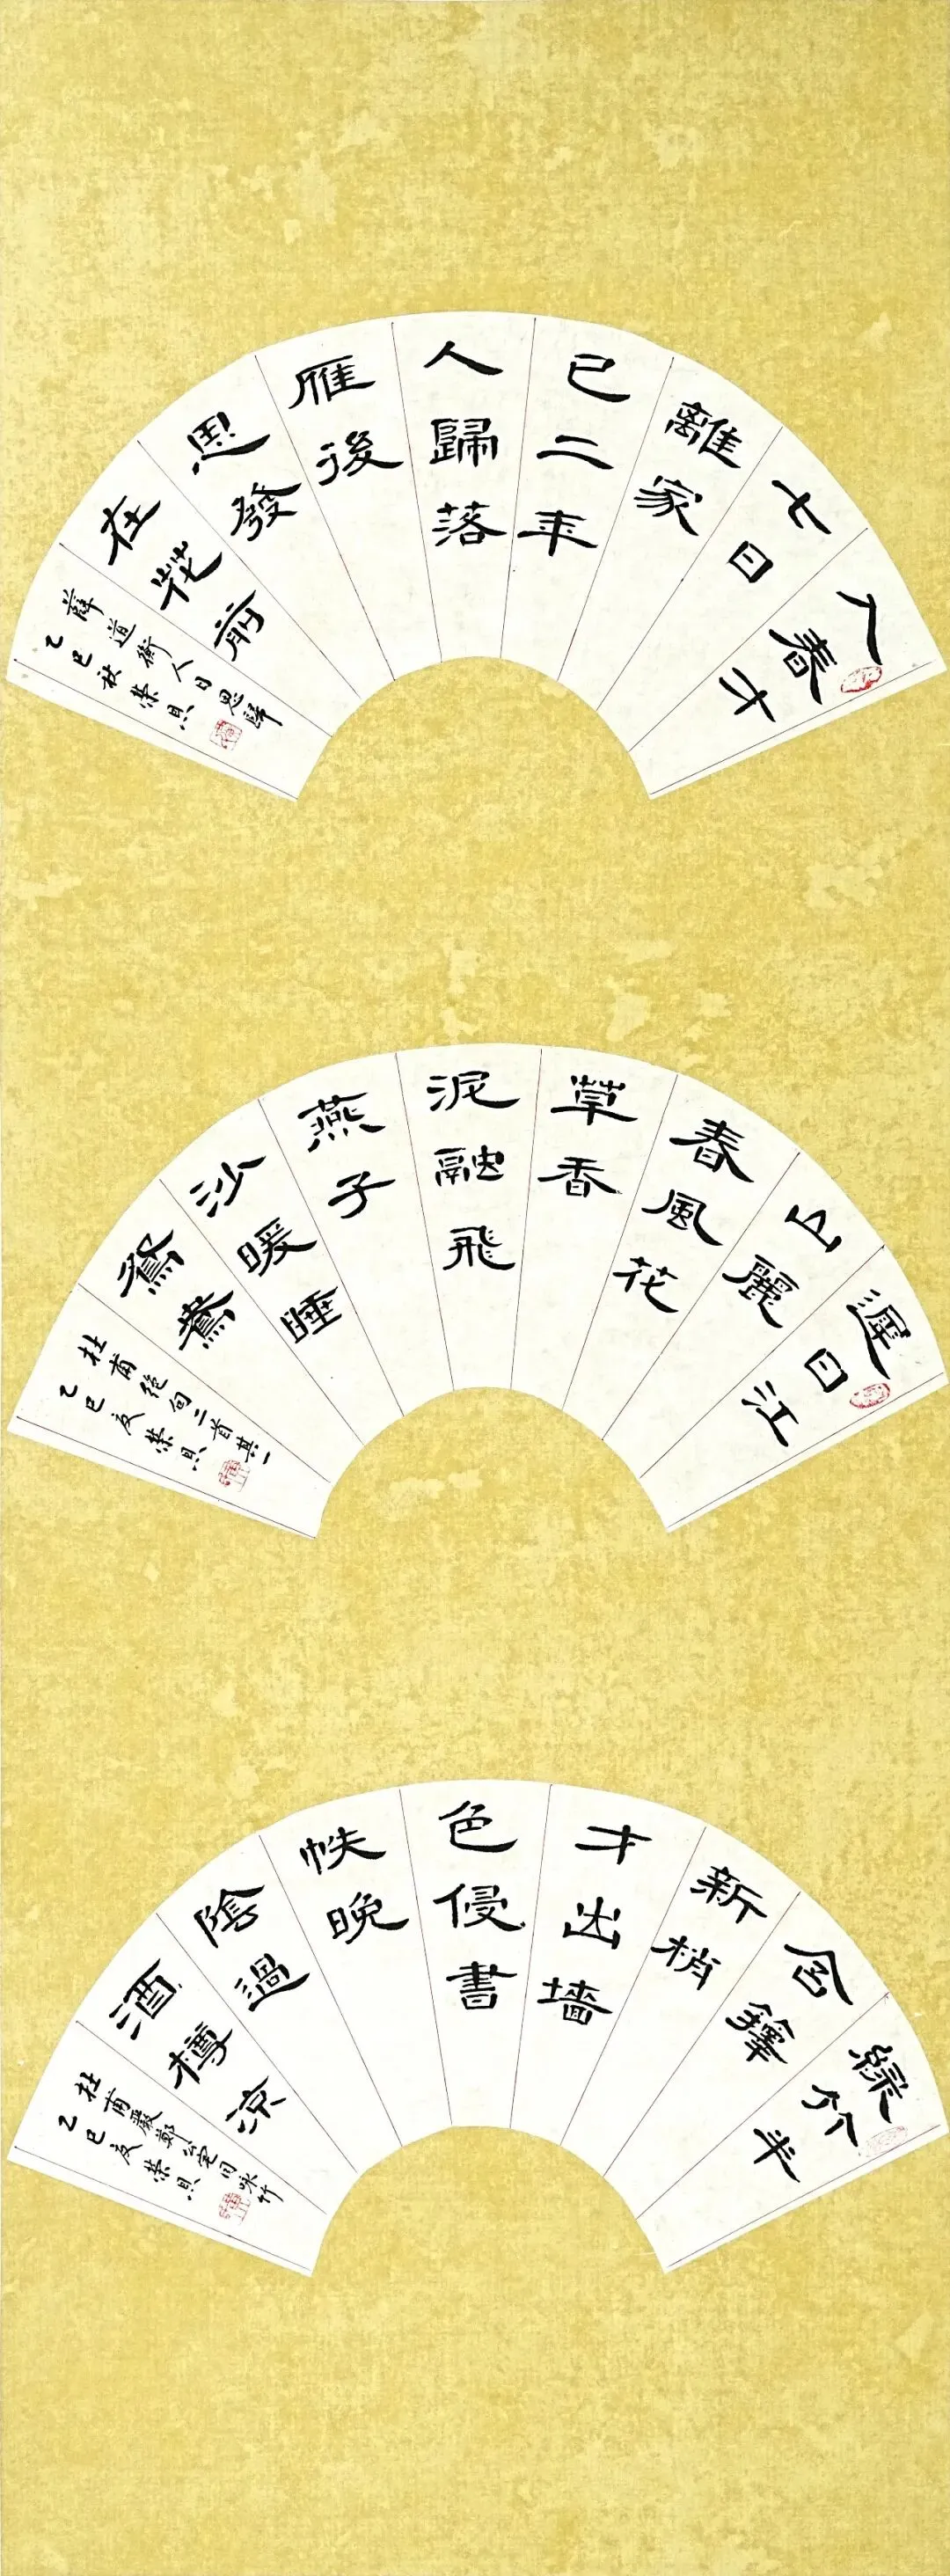 入春才
七日
離家
已二年
人歸落
雁後
思發
在花前
薛道衡人日思歸
乙巳秋榮貝
遲日江
山麗
春風花
草香
泥融飛
燕子
沙暖睡
鴛鴦
杜甫絕句二首其一
乙巳夏榮貝
綠竹半
含籜
新梢
才出墻
色侵書
帙晚
陰過
酒樽涼
杜甫嚴鄭公宅同咏竹
乙巳夏榮貝